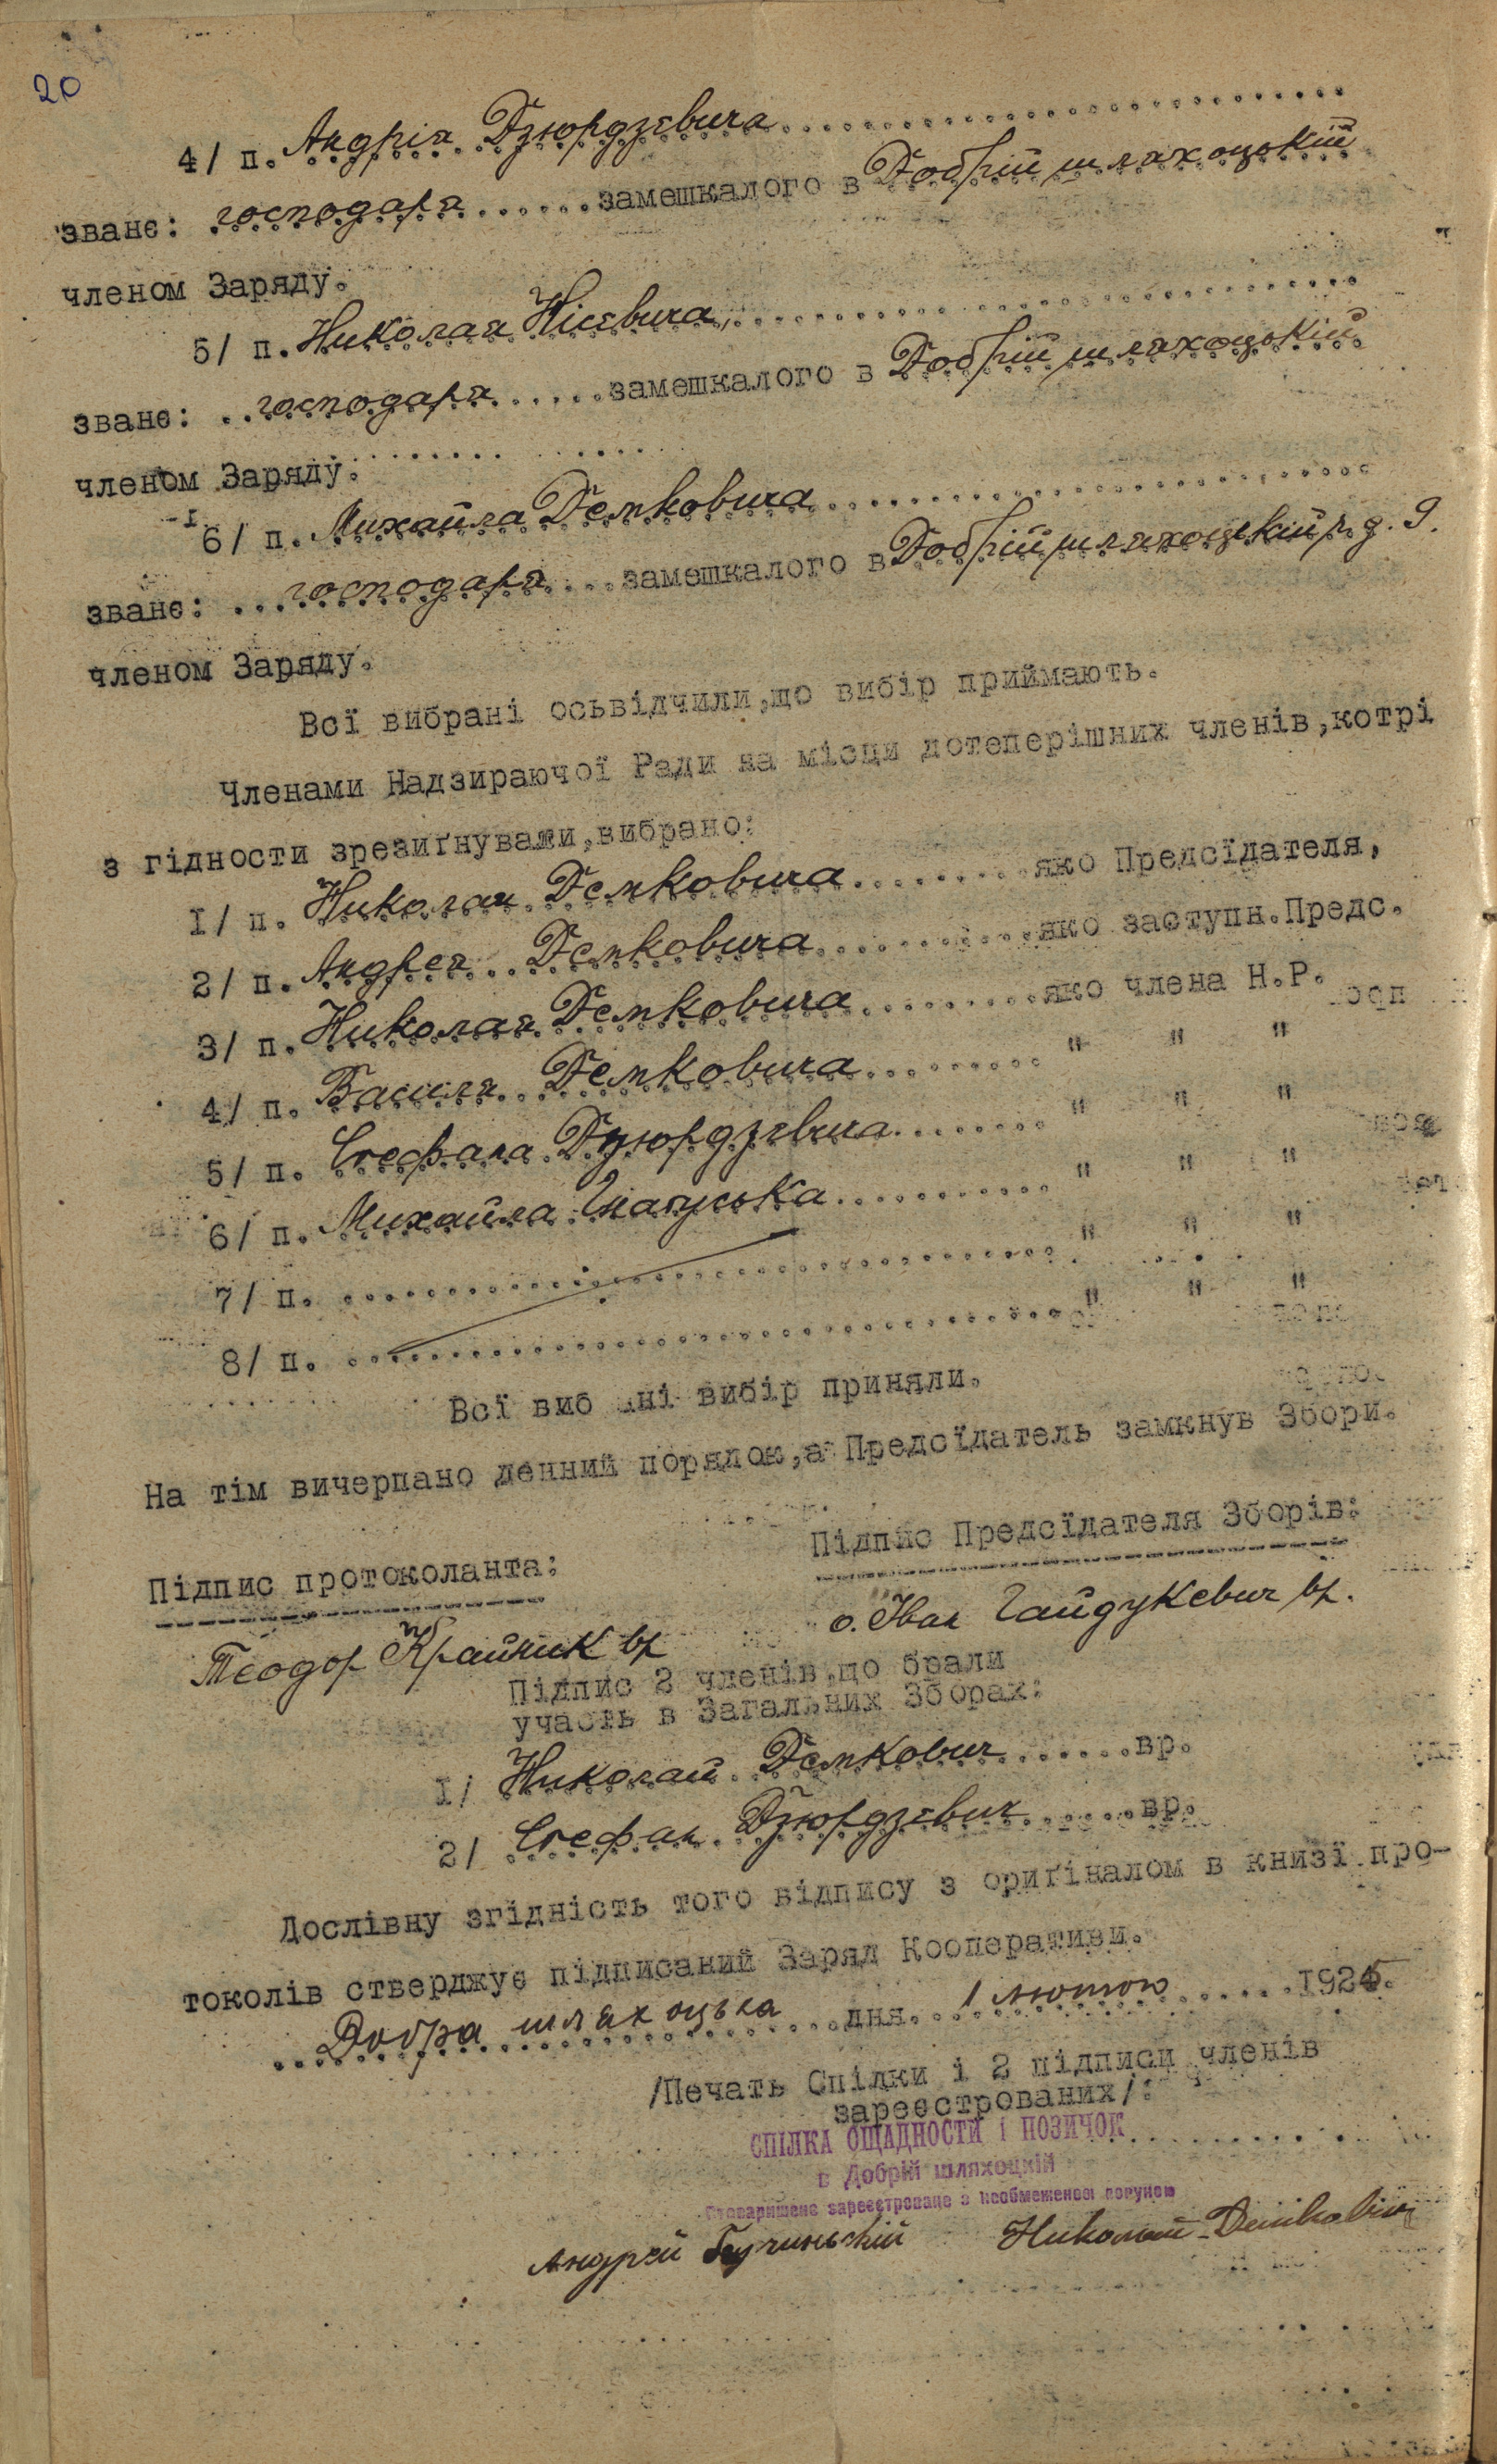 20
4/ п. Андрія Дзюрдзевича
званє: господаря замешкалого в Добрій шляхоцькій
членом Заряду.
5/ п. Николая Нісевича
званє: господаря замешкалого в Добрій шляхоцькій
членом Заряду.
6/ п. Михайла Демковича
званє: господаря замешкалого в Добрій шляхоцькій ч. д. 9.
членом Заряду.
Всї вибрані осьвідчили,що вибір приймають.
Членами Надзираючої Ради на місци дотеперішних членів,котрі
з гідности зрезиґнували,вибрано:
I/ п. Николая Демковича яко Предсїдателя,
2/ п. Андрея Демковича яко заступн.Предс.
3/ п. Николая Демковича яко члена Н.Р.
4/ п. Василя Демковича " " "
5/ п. Стефана Дзюрдзевича " " "
6/ п. Михайла Гнатуська " " "
7/ п. " " "
8/ п. " " "
Всї виб ані вибір приняли.
На тім вичерпано денний порядок,а Предсїдатель замкнув Збори.
Підпис протоколанта: Підпис Предсїдателя Зборів:
Теодор Крайчик вр о. Іван Гайдукевич вр.
Підпис 2 членів,що брали
участь в Загальних Зборах:
I/ Николай Демкович вр.
2/ Стефан Дзюрдзевич вр.
Дослівну згідність того відпису з ориґіналом в книзї про-
токолів стверджує підписаний Заряд Кооперативи.
Добра шляхоцька дня 1 лютого 1925.
/Печать Спілки і 2 підписи членів
зареєстрованих/:
СПІЛКА ОЩАДНОСТИ І ПОЗИЧОК
в Добрій шляхоцкій
Стоваришенє зареєстроване з необмеженою порукою
Андрей Николай Демкович